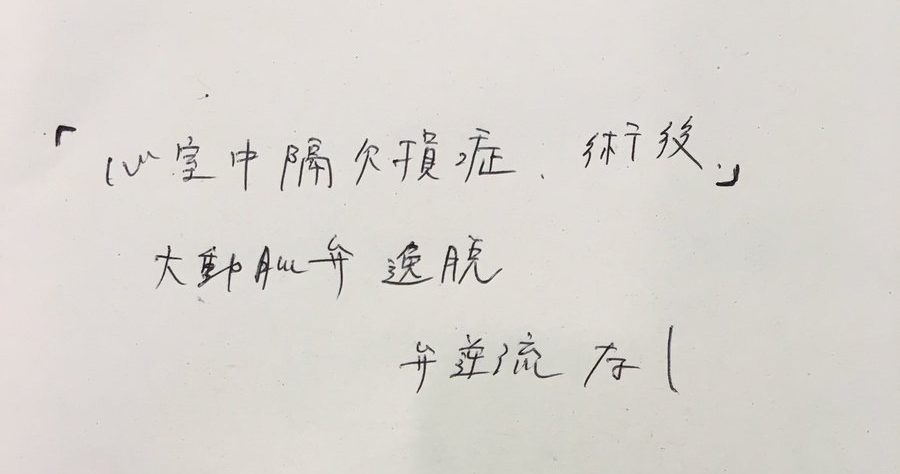 「心室中隔欠損症、術後、」
大動脈弁逸脱
弁逆流なし